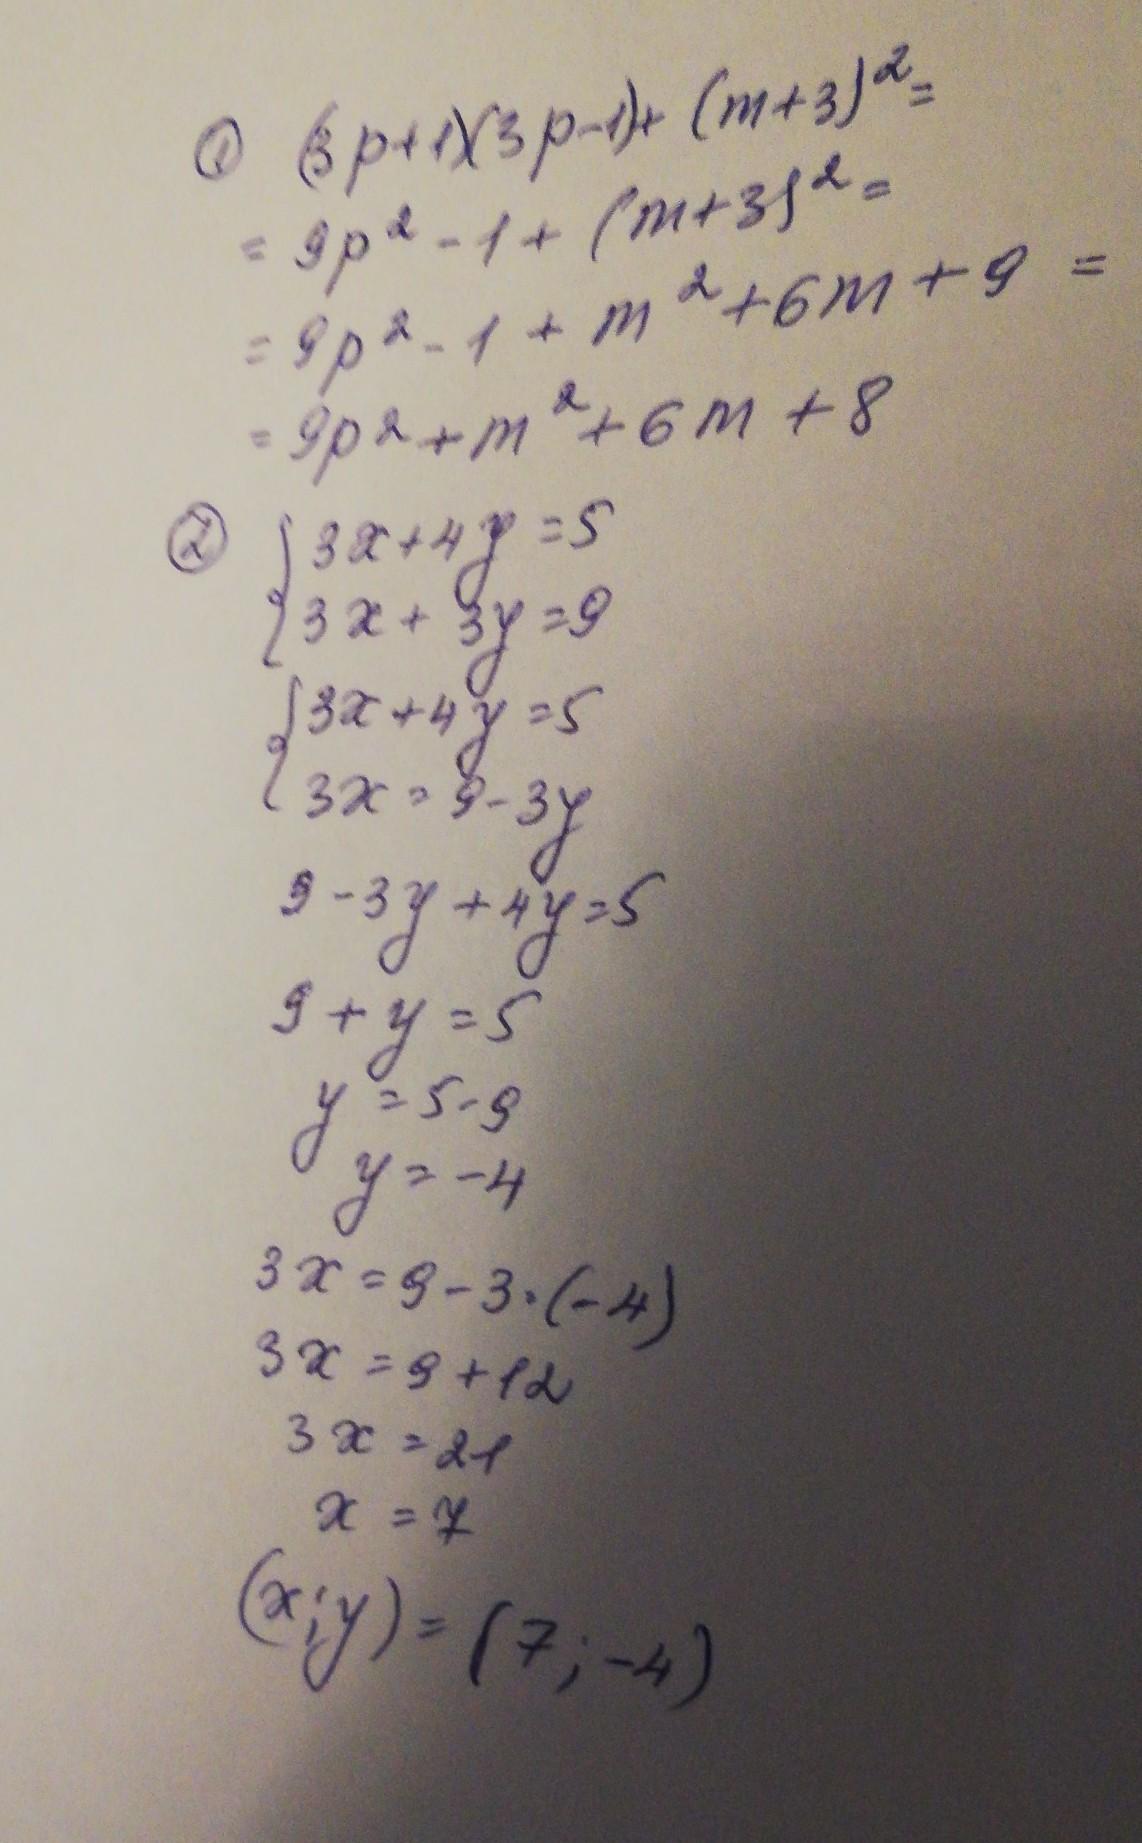 ① (3p+1)(3p-1)+(m+3)²=
= 9p² - 1 + (m+3)² =
= 9p² - 1 + m² + 6m + 9 =
= 9p² + m² + 6m + 8
② { 3x+4y=5
3x+3y=9
{ 3x+4y=5
3x=9-3y
9-3y+4y=5
9+y=5
y=5-9
y=-4
3x=9-3·(-4)
3x=9+12
3x=21
x=7
(x;y)=(7;-4)